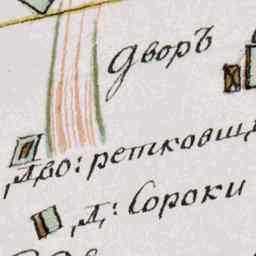 дворЪ
Дво: ретковщ
Д: Сороки